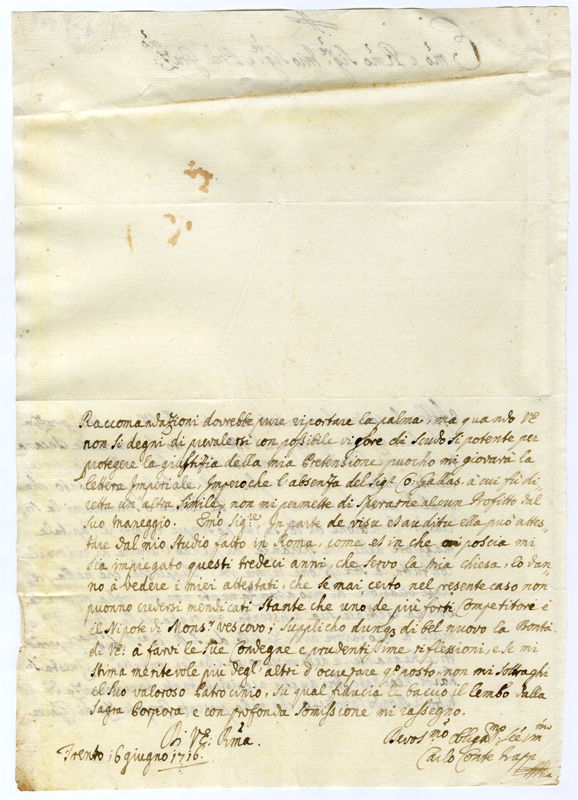 Raccomandazioni dovrebbe pure riportare la palma, ma quando VE
non si degni di prevalersi con possibile vigore di Scudo si potente per
protegere la giustitia della mia Pretensione, puocho mi giovarà la
lettera Imperiale, Imperoche l'absenza del Sigr Co: Galas, à cui fù di=
retta un'altra Simile, non mi permette di Sperarne alcun Profitto dal
Suo maneggio. Emo Sigre In parte de visu et auditu ella può attes=
tare dal mio Studio fatto in Roma, come et in che poscia mi
sia impiegato questi tredeci anni, che Servo la mia chiesa, lo dan=
no à vedere i miei attestati, che se mai, certo nel presente caso non
puonno credersi mendicati Stante che uno de più forti Competitori è
il Nipote di Monsr vescovo; Supplicho dunq; di bel nuovo la Bontà
di VE: à farvi le Sue Condegne e prudentissime riflessioni, e Se mi
Stima meritevole più degl'altri d'occupare qto posto, non mi Sottraghi
il Suo valoroso Patrocinio, Su qual fiducia le bacio il lembo della
Sagra Porpora, e con profonda Somissione mi rassegno.
Di VE: Rma.
Trento 6 giugno 1716.
Devosmo obligamo
Carlo Conte Trapp